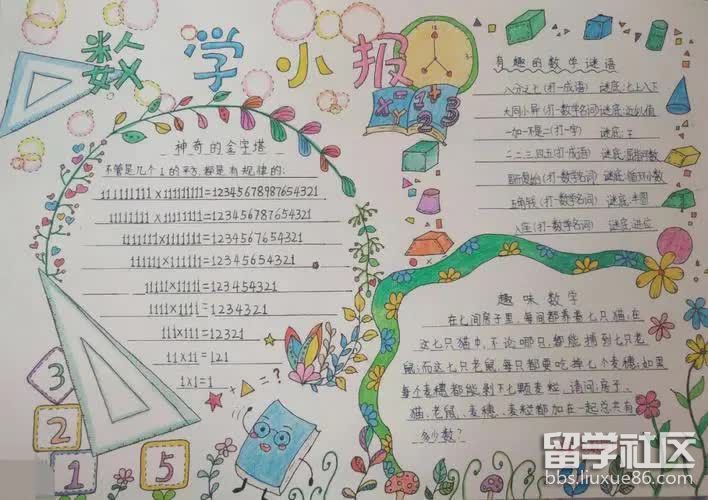 数学小报
神奇的金字塔
不管是几个1的平方,都是有规律的:
111111111×111111111=12345678987654321
11111111×11111111=123456787654321
1111111×1111111=1234567654321
111111×111111=12345654321
11111×11111=123454321
1111×1111=1234321
111×111=12321
11×11=121
1×1=1
+ = ?
3
2
1
5
× - 1 + 2
Y 2 3
有趣的数学谜语
八分之七(打一成语) 谜底:七上八下
大同小异(打一数学名词) 谜底:近似值
一加一不是二(打一字) 谜底:王
二二三四五(打一成语) 谜底:屈指可数
周而复始(打一数学名词) 谜底:循环小数
五角钱(打一数学名词) 谜底:半圆
入座(打一数学名词) 谜底:进位
趣味数学
在七间房子里,每间都养着七只猫;在
这七只猫中,不论哪只,都能捕到七只老
鼠;而这七只老鼠,每只都要吃掉七个麦穗;如果
每个麦穗都能剥下七颗麦粒,请问:房子、
猫、老鼠、麦穗、麦粒都加在一起总共有
多少数?
留学社区
bbs.liuxue86.com